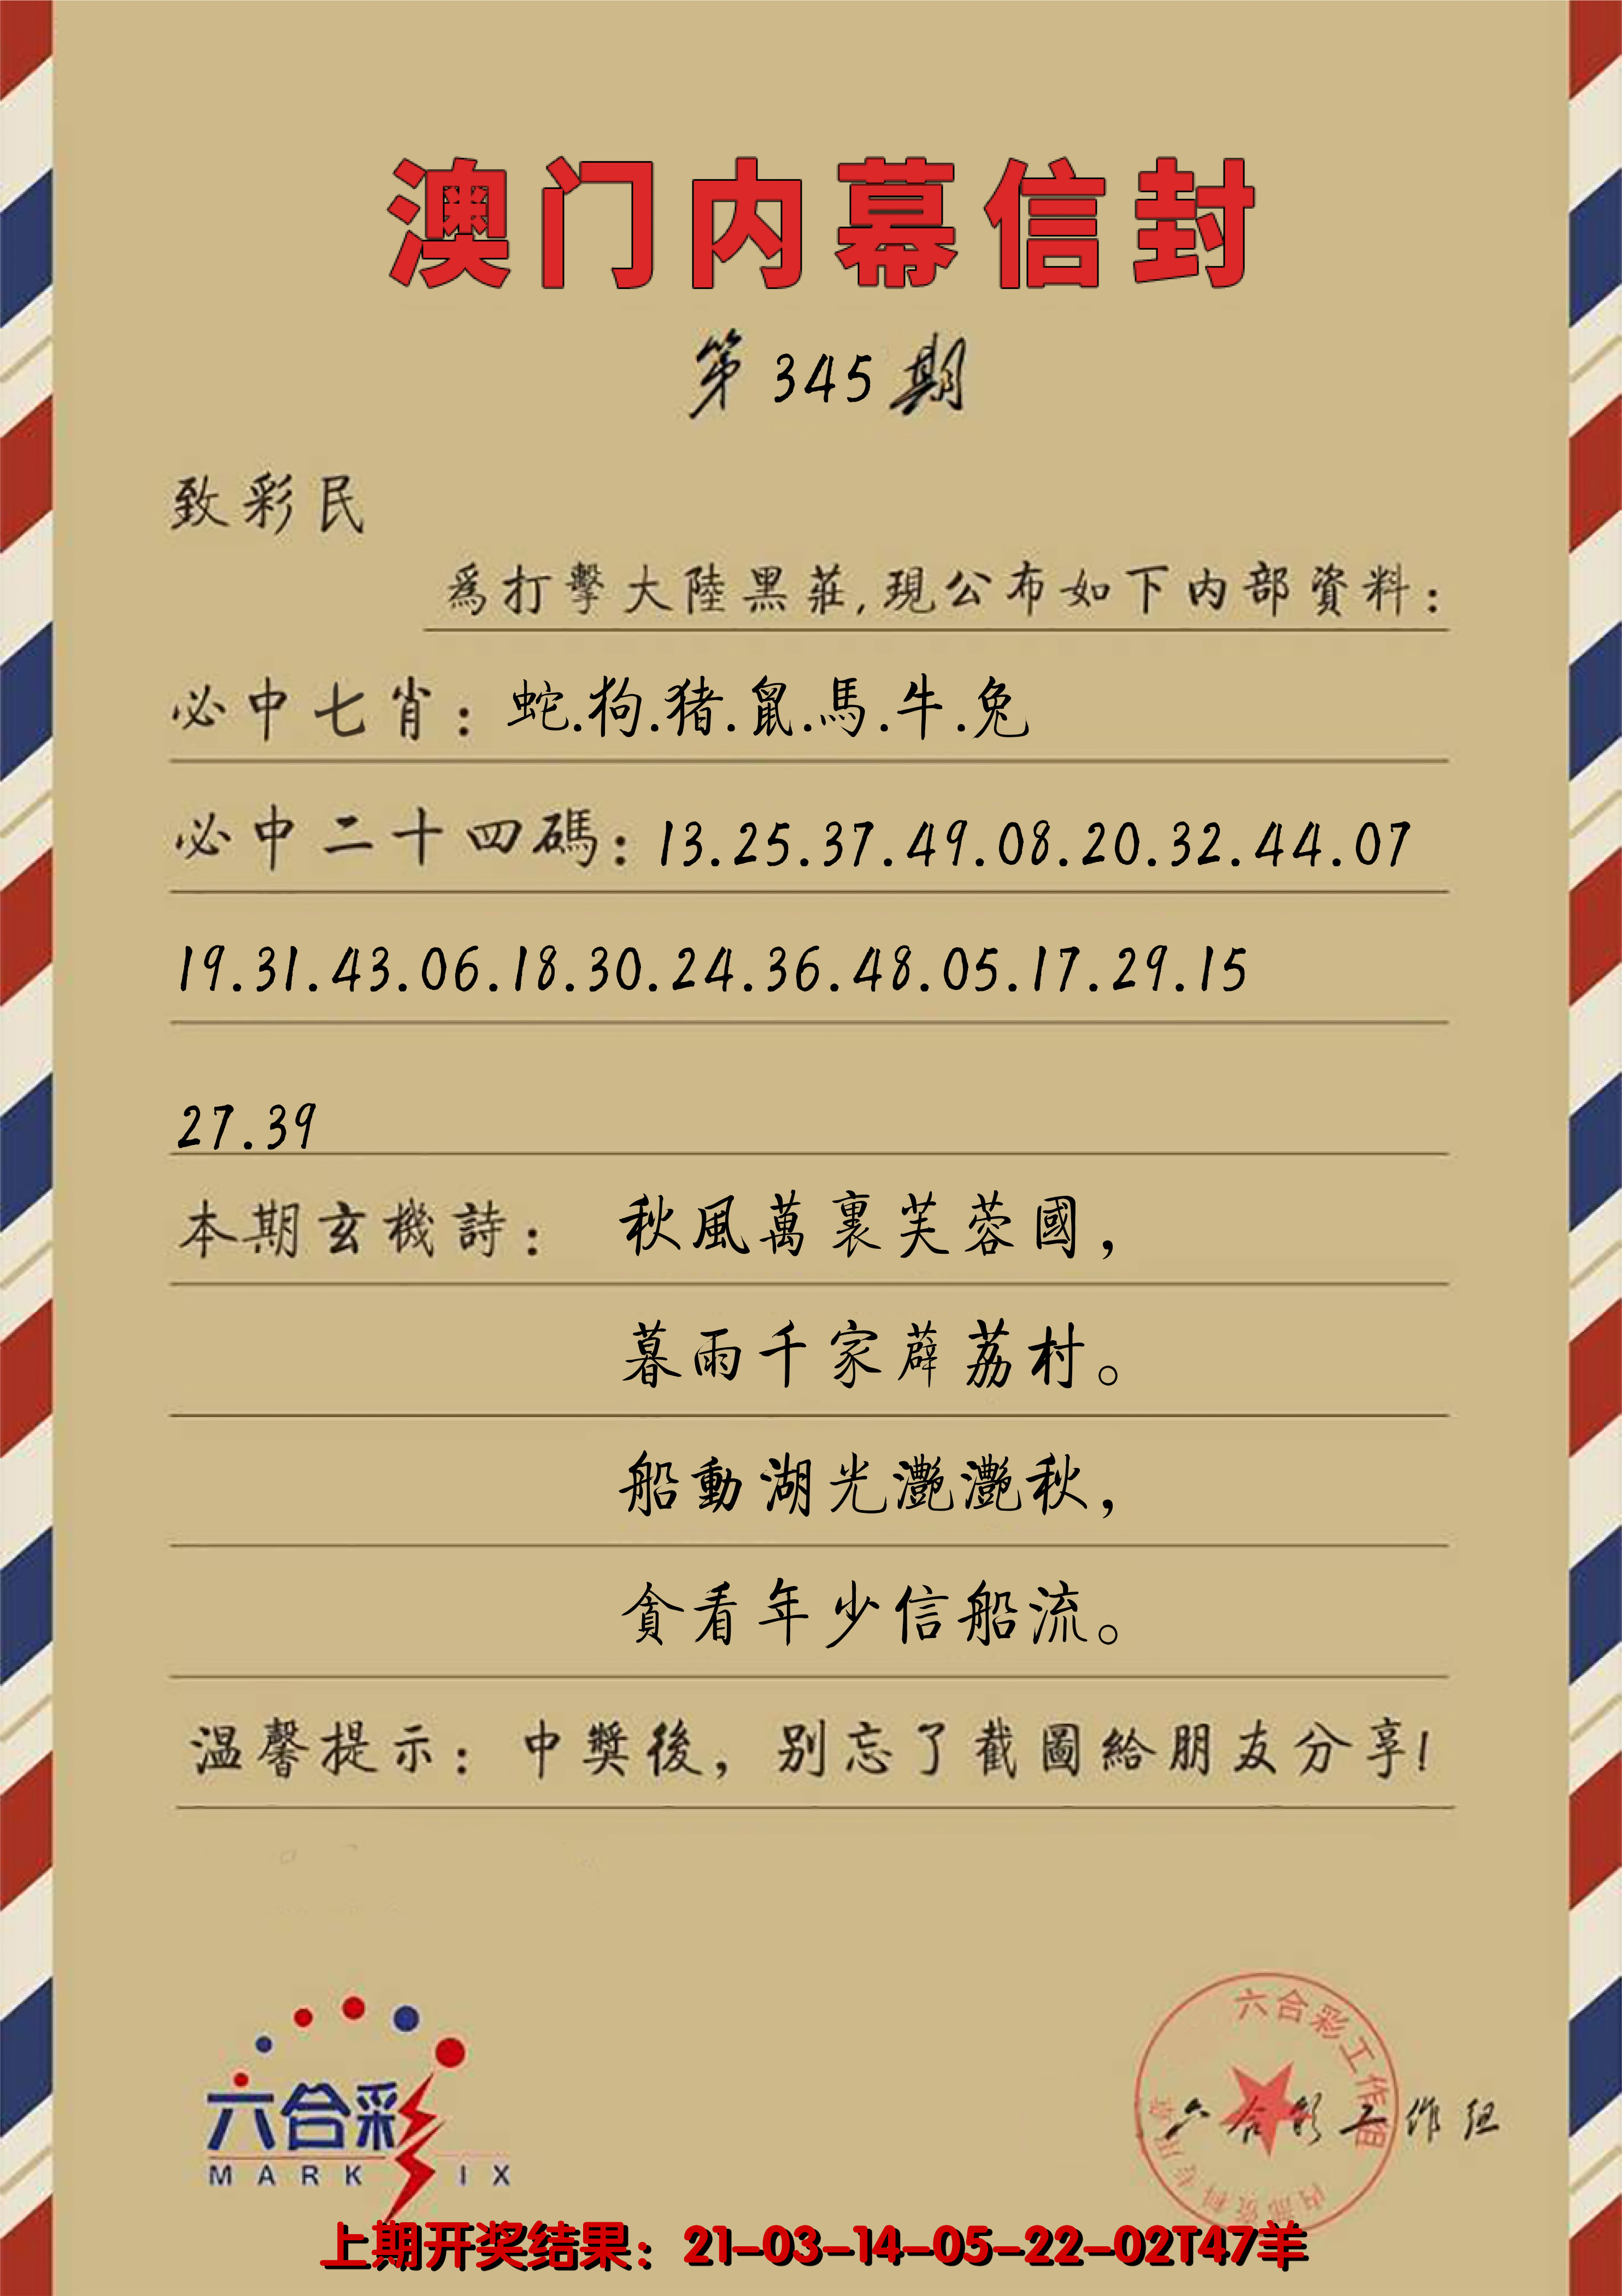 澳门内幕信封
第345期
致彩民
為打擊大陸黑莊,現公布如下内部資料：
必中七肖：蛇.狗.猪.鼠.馬.牛.兔
必中二十四碼：13.25.37.49.08.20.32.44.07
19.31.43.06.18.30.24.36.48.05.17.29.15
27.39
本期玄機詩：秋風萬裏芙蓉國，
暮雨千家薜荔村。
船動湖光灔灔秋，
貪看年少信船流。
温馨提示：中獎後，别忘了截圖給朋友分享!
六合彩
MARK IX
六合彩工作组
内部资料专用章
六合彩工作组
上期开奖结果：21-03-14-05-22-02T47羊